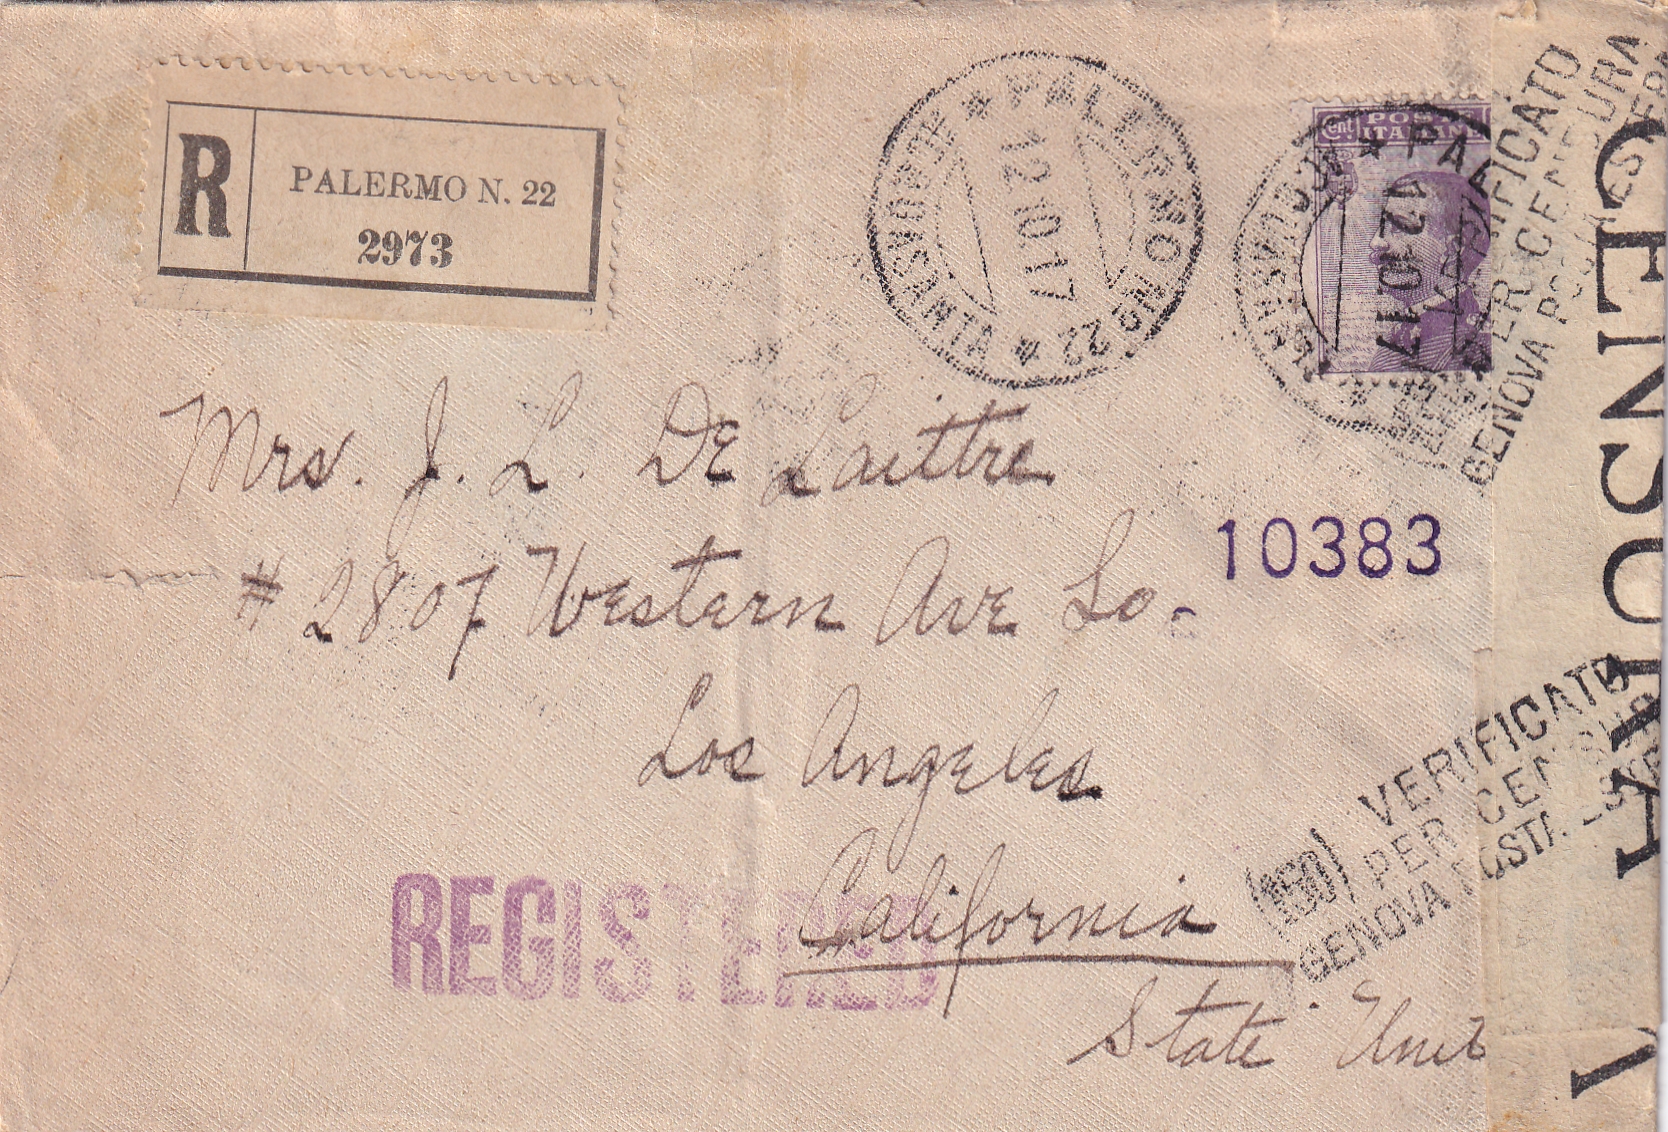 R
PALERMO N. 22
2973
PALERMO No 22
12.10.17
Cent. POS
ITALIANE
PAL
12.10.17
VERIFICATO
PER CENSURA
GENOVA POSTA ESTERA
CENSURA
Mrs. J. L. De Laittre
10383
# 2807 Western Ave So.
Los Angeles
California
REGISTERED
State Unit
(150) VERIFICATO
PER CENSURA
GENOVA POSTA ESTE